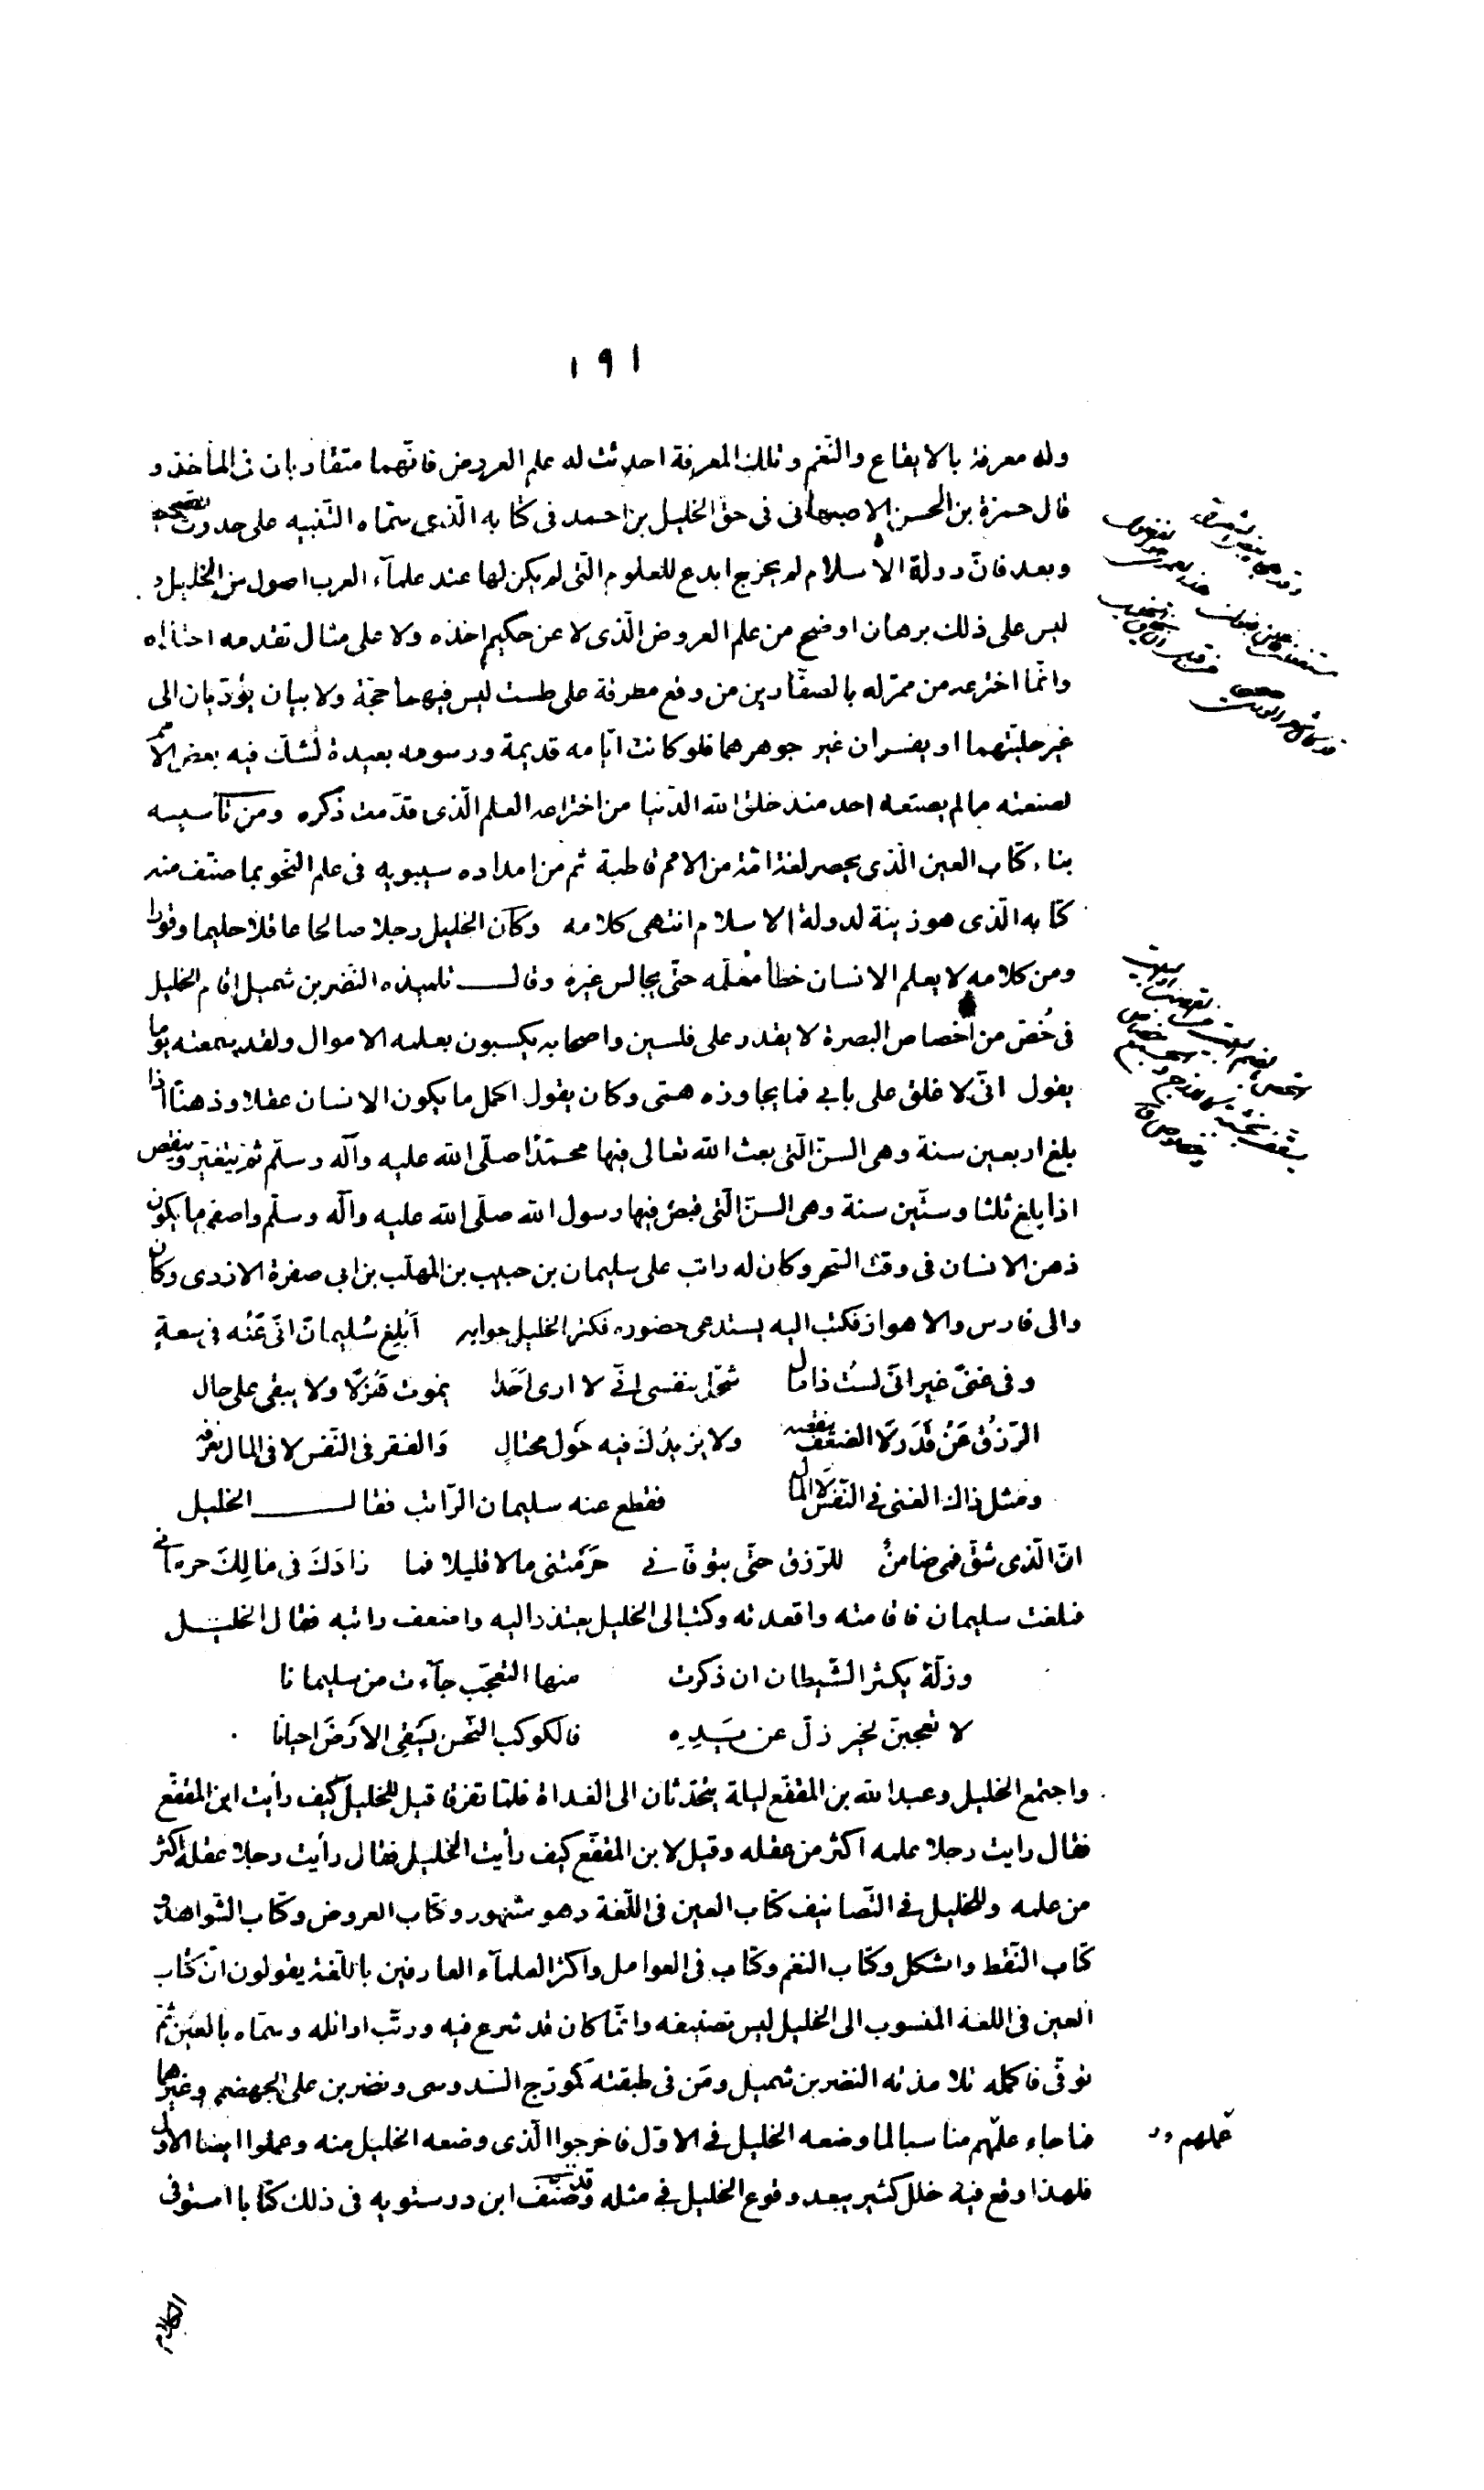 ١٩١
وله معرفة بالايقاع والنّغم وتلك المعرفة احدثت له علم العروض فانّهما متقاربان فى المأخذ و
قال حمزة بن الحسن الاصبهانى فى حقّ الخليل بن احمد فى كتابه الّذى سمّاه التنبيه على حدوث التصحيف
وبعد فانّ دولة الاسلام لم يخرج ابدع للعلوم الّتى لم يكن لها عند علمآء العرب اصول من الخليل و
ليس على ذلك برهان اوضح من علم العروض الّذى لا عن حكيم اخذه ولا على مثال تقدمه احتذاه
وانّما اخترعه من ممرّ له بالصفّارين من وقع مطرقة على طست ليس فيهما حجّة ولا بيان يؤدّيان الى
غير حليتهما او يفسران غير جوهرهما فلو كانت ايّامه قديمة ورسومه بعيدة لشكّ فيه بعض الامم
لصنعته ما لم يصنعه احد منذ خلق الله الدّنيا من اختراعه العلم الّذى قدّمت ذكره ومن تأسيسه
بناء كتاب العين الّذى يحصر لغة امّة من الامم قاطبة ثم من امداده سيبويه فى علم النّحو بما صنّف منه
كتابه الّذى هو زينة لدولة الاسلام انتهى كلامه وكان الخليل رجلا صالحا عاقلا حليما وقورا
ومن كلامه لا يعلم الانسان خطأ معلّمه حتّى يجالس غيره وقال تلميذه النّضر بن شميل اقام الخليل
فى خُصّ من اخصاص البصرة لا يقدر على فلسين واصحابه يكسبون بعلمه الاموال ولقد سمعته يوما
يقول انّى لاغلق على بابى فما يجاوزه همّى وكان يقول اكمل ما يكون الانسان عقلا وذهنًا اذا
بلغ اربعين سنة وهى السنّ الّتى بعث الله تعالى فيها محمّدًا صلّى الله عليه وآله وسلّم ثم يتغيّر وينقص
اذا بلغ ثلثا وستّين سنة وهى السنّ الّتى قبض فيها رسول الله صلّى الله عليه وآله وسلّم واصفى ما يكون
ذهن الانسان فى وقت السّحر وكان له راتب على سليمان بن حبيب بن المهلّب بن ابى صفرة الازدى وكان
والى فارس والاهواز فكتب اليه يستدعى حضوره فكتب الخليل جوابه اَبلِغ سُليمان انّى عَنْه فى سعةٍ
وفى غنىً غير انّى لستُ ذا مال شحّا بنفسى انّى لا ارى اَحَدا يموت هَزلًا ولا يبقى على حال
الرّزقُ عَنْ قَدَر لا الضعف ينقصه ولا يزيدُكَ فيه حَول محتالٍ والفقر فى النّفس لا فى المال تعرفه
ومثل ذاك الغنى فى النّفس لا المال فقطع عنه سليمان الرّاتب فقال الخليل
انّ الّذى شقّ فمى ضامنٌ للرّزق حتّى يتوفّانى حَرَمتنى مالا قليلا فما زادَكَ فى مالِكَ حرمانى
فبلغت سليمان فاقامته واقعدته وكتب الى الخليل يعتذر اليه واضعف راتبه فقال الخليل
وزلّة يكثر الشّيطان ان ذكرت منها التعجّب جآءت من سليمانا
لا تعجبنّ لخير زلّ عن يَدِهِ فالكوكب النّحس يَسقِى الارضَ احيانا
واجتمع الخليل وعبد الله بن المقفّع ليلة يتحدّثان الى الغداة فلمّا تفرقا قيل للخليل كيف رأيت ابن المقفّع
فقال رايت رجلا علمه اكثر من عقله وقيل لابن المقفّع كيف رأيت الخليل فقال رأيت رجلا عقله اكثر
من علمه وللخليل فى التّصانيف كتاب العين فى اللّغة وهو مشهور وكتاب العروض وكتاب الشّواهد و
كتاب النّقط والشكل وكتاب النغم وكتاب فى العوامل واكثر العلمآء العارفين باللّغة يقولون انّ كتاب
العين فى اللغة المنسوب الى الخليل ليس تصنيفه وانّما كان قد شرع فيه ورتّب اوائله وسمّاه بالعين ثمّ
توفّى فاكمله تلامذته النضر بن شميل ومَن فى طبقته كمورّج السّدوسى ونصر بن على الجهضمى وغيرهما
فما جاء علّهم مناسبا لما وضعه الخليل فى الاوّل فاخرجوا الّذى وضعه الخليل منه وعملوا ايضا الاوّل
عملهم
فلهذا وقع فيه خلل كثير يبعد وقوع الخليل فى مثله وقد صنّف ابن درستويه فى ذلك كتابا استوفى
الكلام